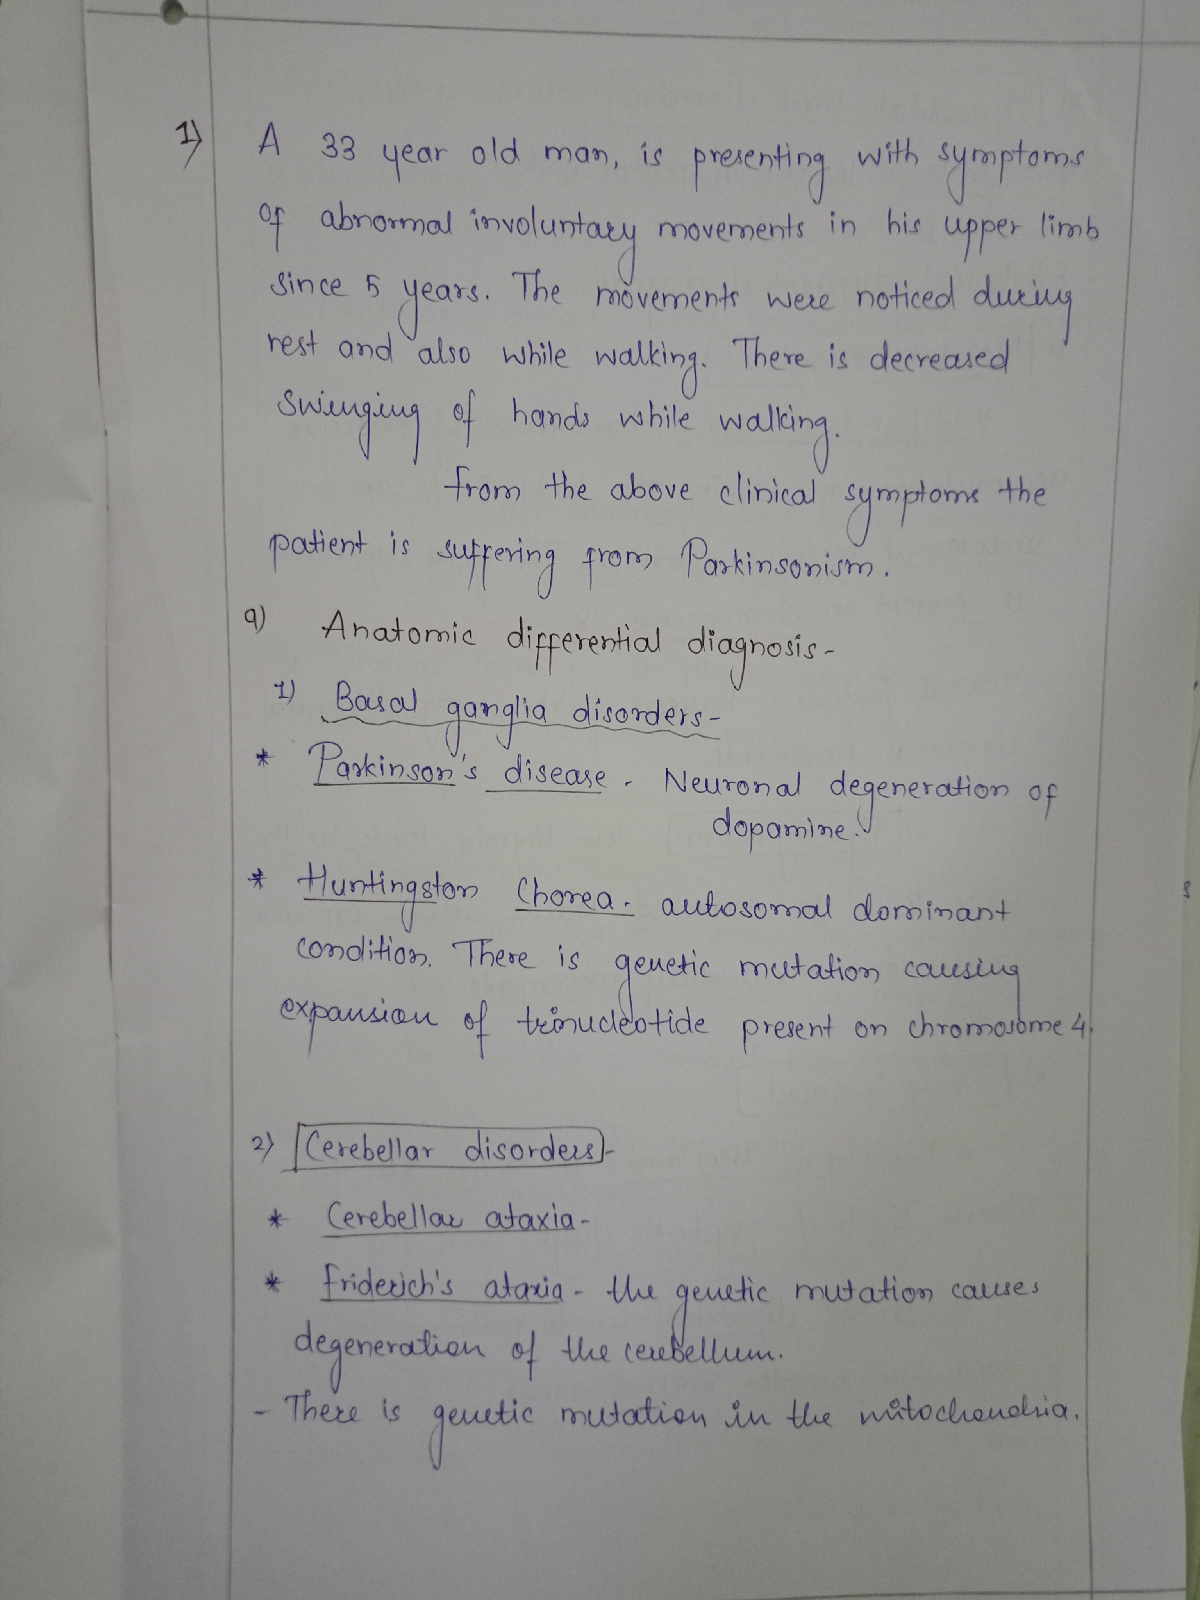 1) A 33 year old man, is presenting with symptoms
of abnormal involuntary movements in his upper limb
since 5 years. The movements were noticed during
rest and also while walking. There is decreased
swinging of hands while walking.
from the above clinical symptoms the
patient is suffering from Parkinsonism.
a) Anatomic differential diagnosis-
1) Basal ganglia disorders-
* Parkinson's disease - Neuronal degeneration of
dopamine.
* Huntingston Chorea - autosomal dominant
condition. There is genetic mutation causing
expansion of trinucleotide present on chromosome 4.
2) Cerebellar disorders-
* Cerebellar ataxia-
* friderich's ataxia - the genetic mutation causes
degeneration of the cerebellum.
- There is genetic mutation in the mitochondria.